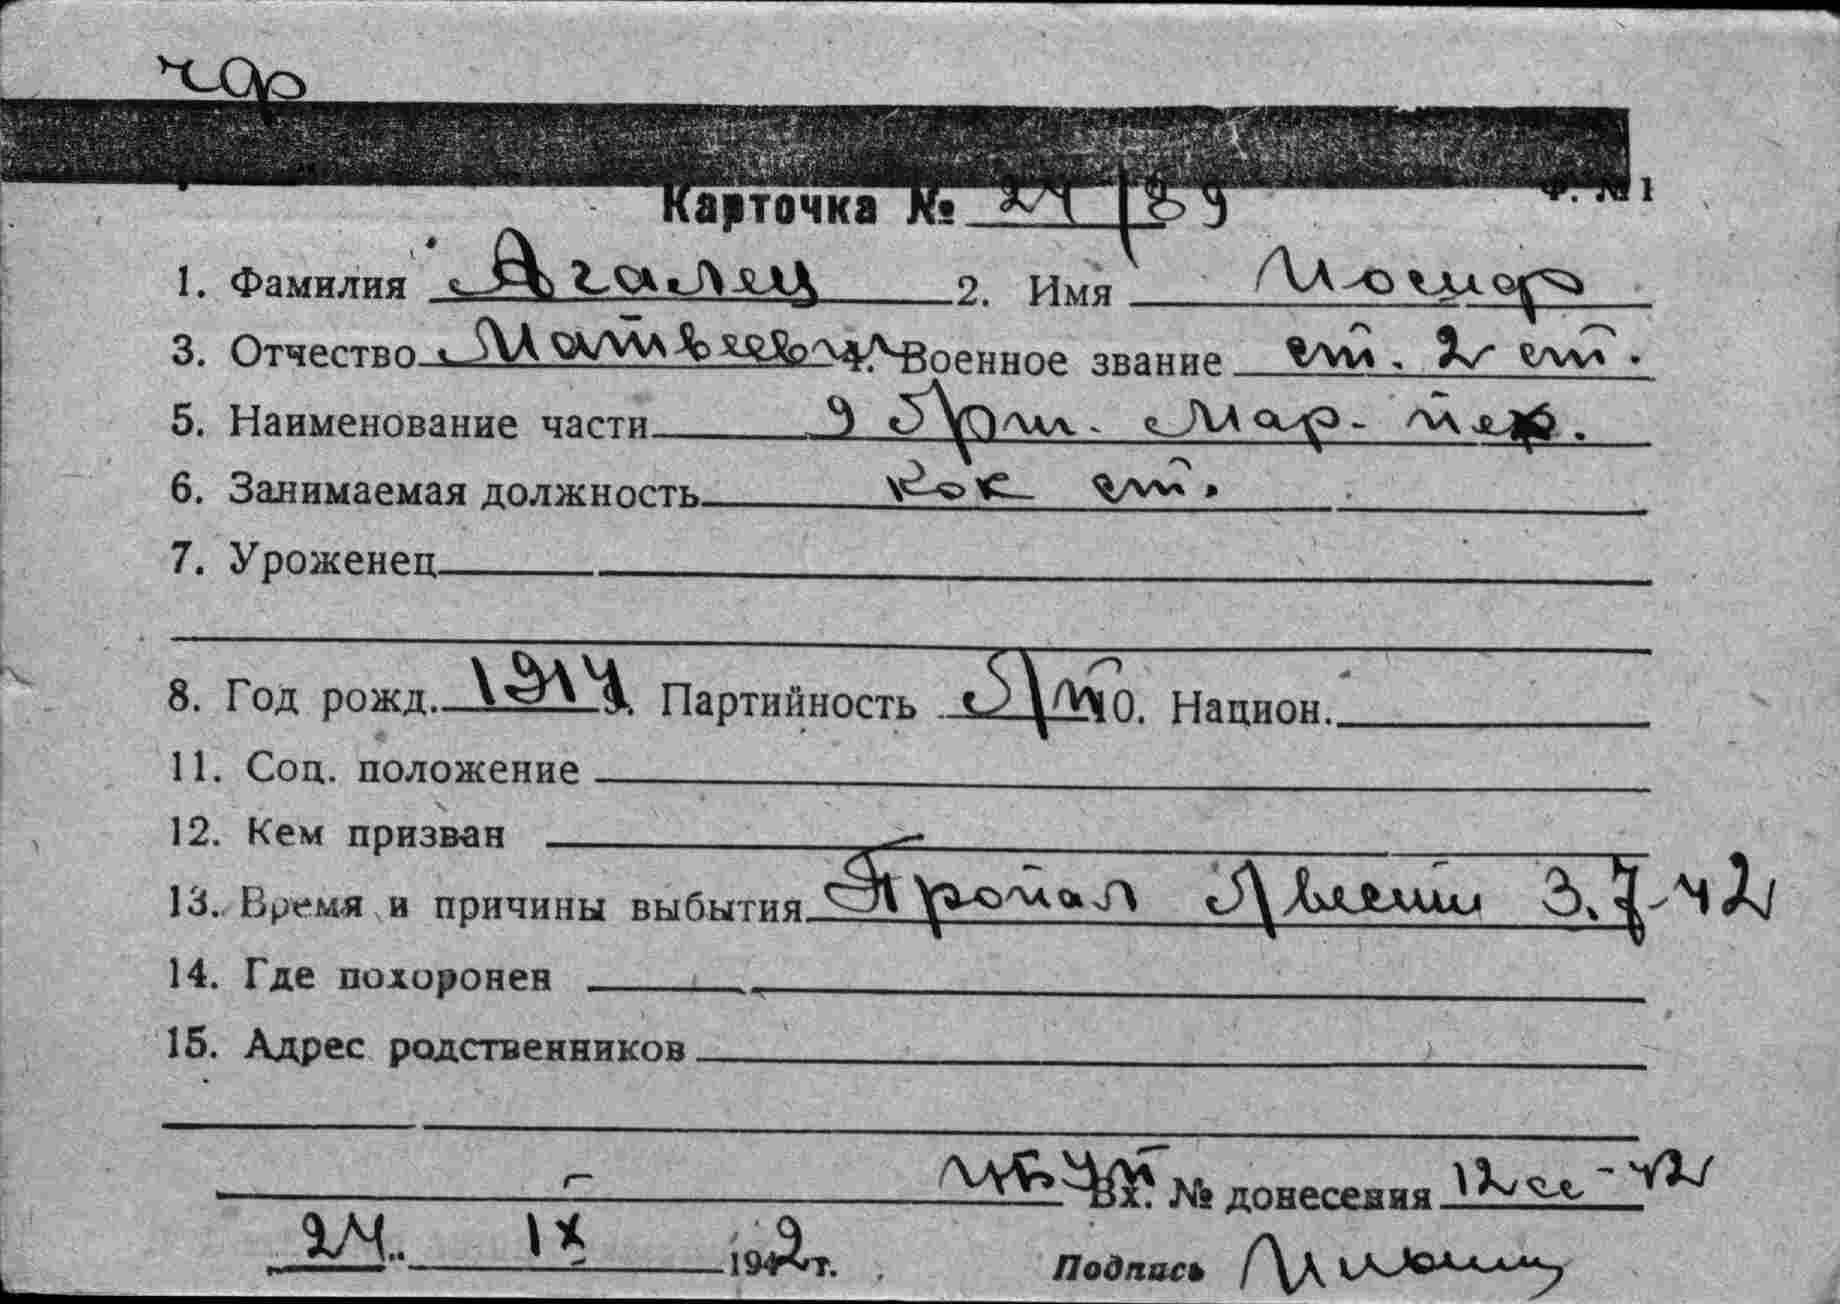 чф
Карточка № 24/89
Ф. № 1
1. Фамилия Агалец 2. Имя Иосиф
3. Отчество Матвеевич 4. Военное звание ст. 2 ст.
5. Наименование части 9 бриг. мар. пех.
6. Занимаемая должность кок ст.
7. Уроженец
8. Год рожд. 1914 9. Партийность б/п 10. Национ.
11. Соц. положение
12. Кем призван
13. Время и причины выбытия Пропал б/вести 3.7-42
14. Где похоронен
15. Адрес родственников
Вх. № донесения 12сс-42
24 IX 1942 г. Подпись